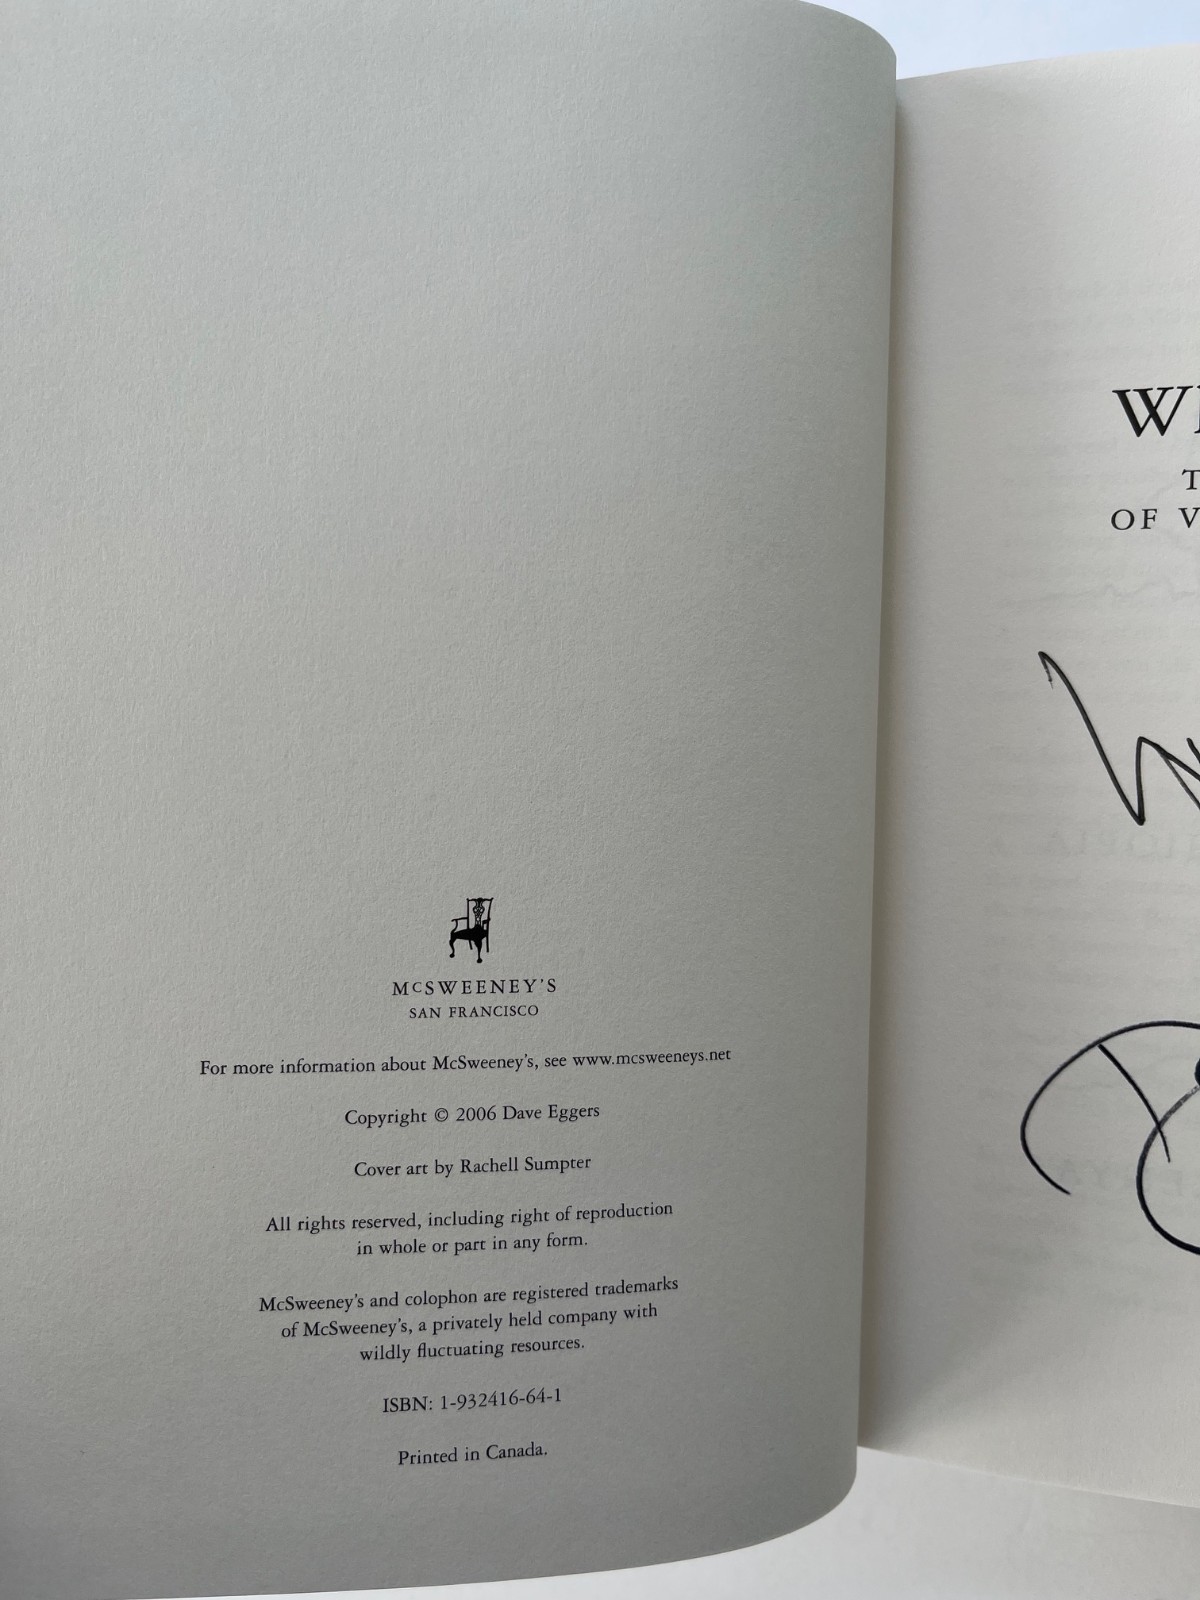 McSWEENEY'S
SAN FRANCISCO
For more information about McSweeney's, see www.mcsweeneys.net
Copyright © 2006 Dave Eggers
Cover art by Rachell Sumpter
All rights reserved, including right of reproduction
in whole or part in any form.
McSweeney's and colophon are registered trademarks
of McSweeney's, a privately held company with
wildly fluctuating resources.
ISBN: 1-932416-64-1
Printed in Canada.
OF V